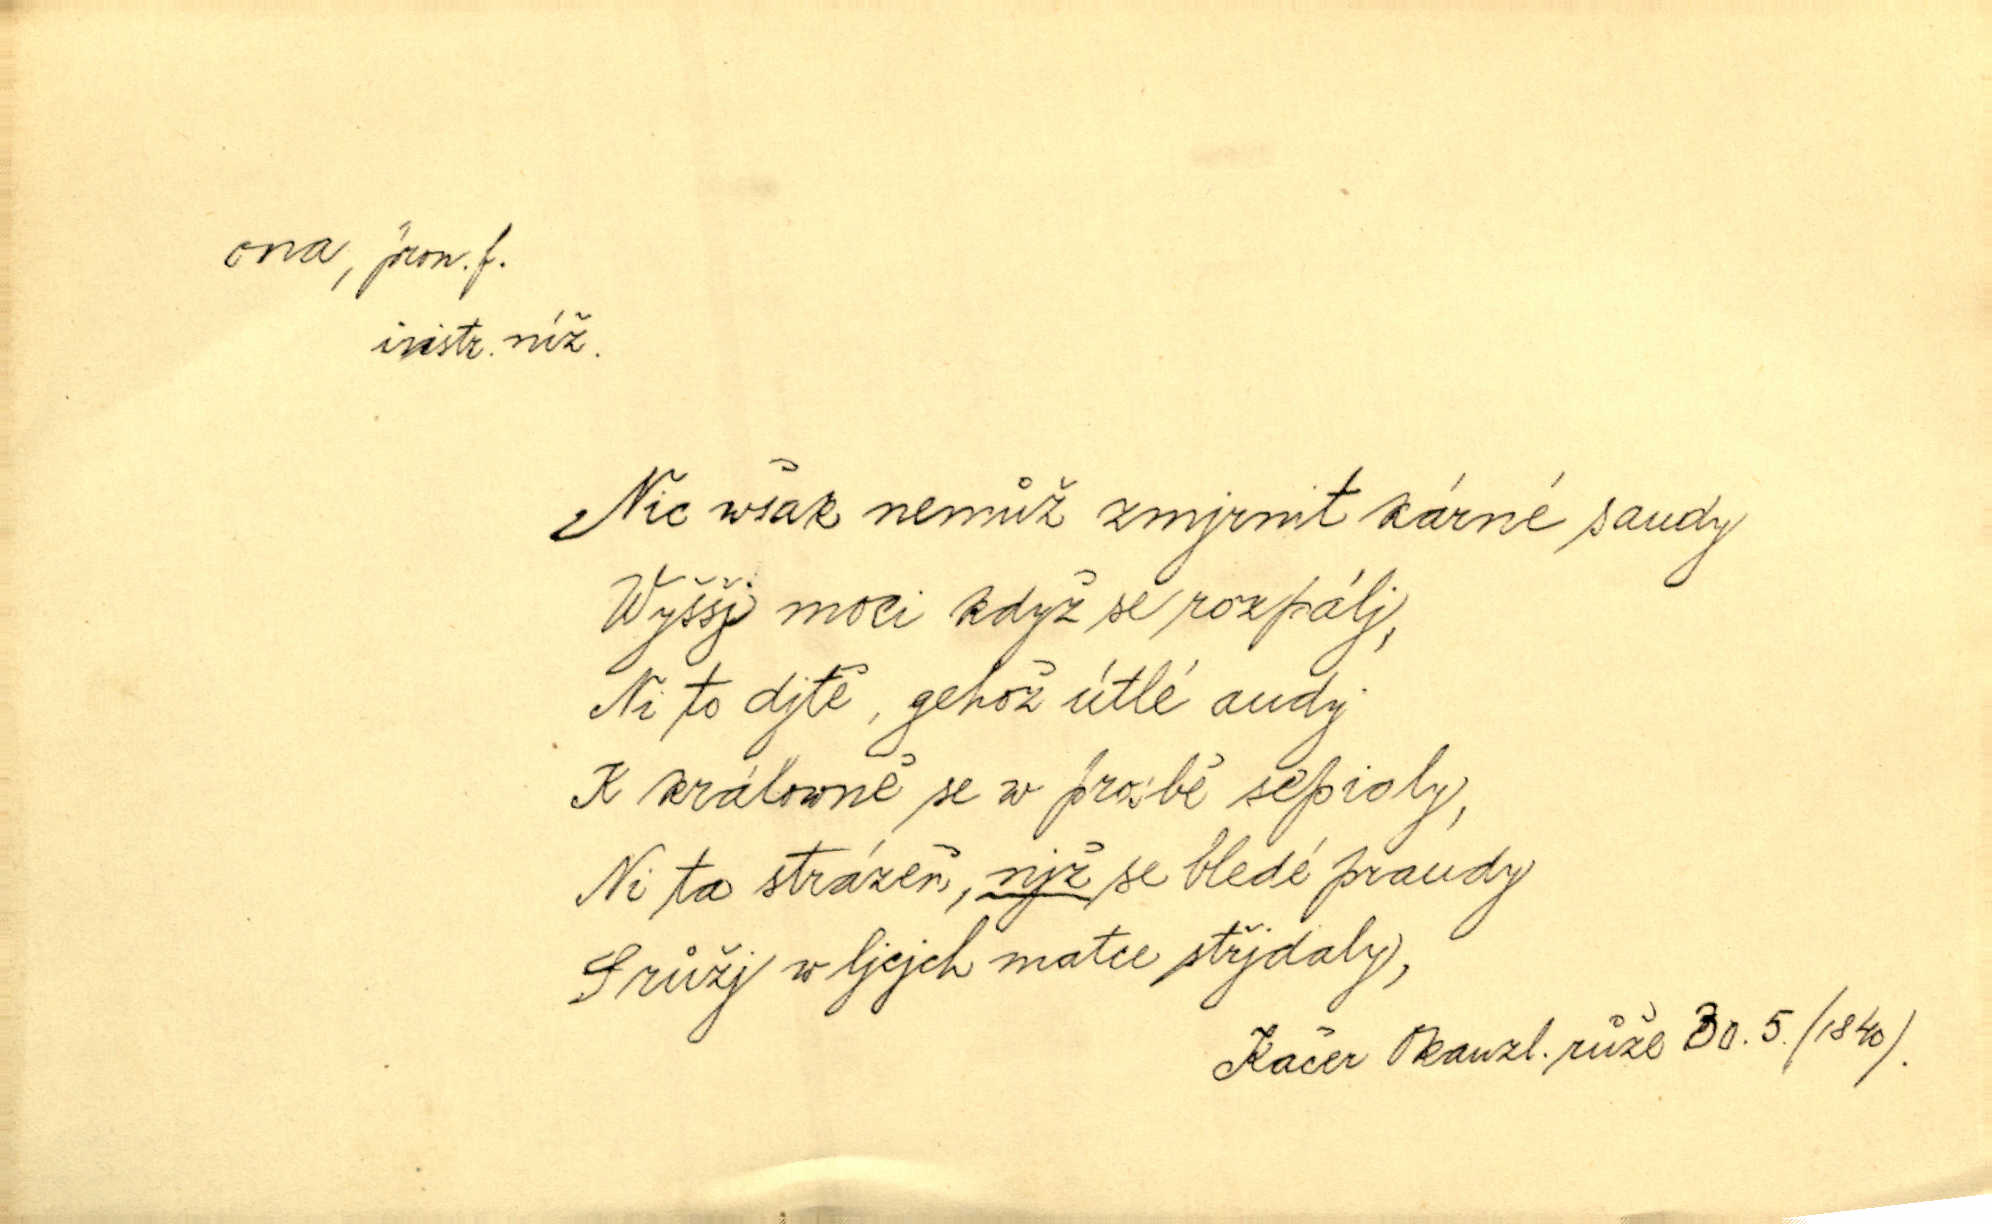 ona, pron. f.
instr. níž.
Nic wšak nemůž zmjrnit kárné saudy
Wyššj moci když se rozpálj,
Ni to djtě, gehož útlé audy
K králowně se w prosbě sepialy,
Ni ta strázeň, njž se bledé praudy
S růžj w ljcjch matce střjdaly,
Kačer Okauzl. růže 30. 5. (1840).